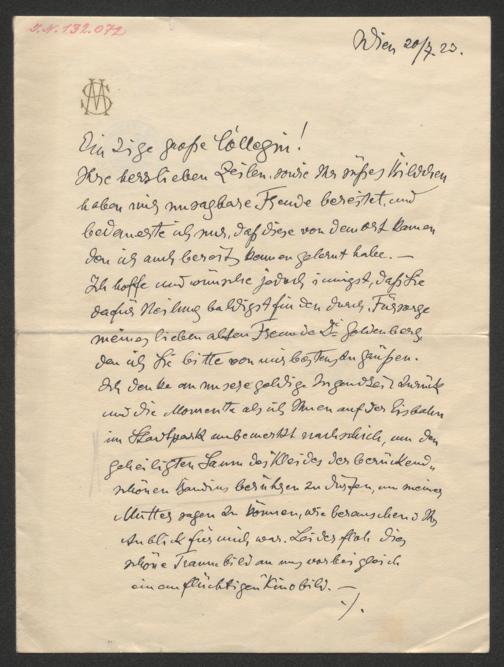 J.N. 132.072
Wien 20/7. 23.
MS
Einzige große Collegin!
Ihre herzlieben Zeilen, sowie Ihr süßes Bildchen
haben mir unsagbare Freude bereitet, und
bedauerte ich nur, daß diese von dem Ort kamen
den ich auch bereits kennen gelernt habe. —
Ich hoffe und wünsche jedoch innigst, daß Sie
dafür Heilung baldigst finden durch Fürsorge
meines lieben alten Freunde Dr. Goldenberg,
den ich Sie bitte von mir bestens zu grüßen.
Ich denke an unsere goldige Jugendzeit zurück
und die Momente als ich Ihnen auf der Eisbahn
im Stadtpark unbemerkt nachschlich, um den
geheiligten Saum des Kleides der berückend„
schönen berühren zu dürfen, um meiner
Mutter sagen zu können, wie berauschend Ihr
Anblick für mich war. Leider floh dies
schöne Traumbild an uns vorbei gleich
einem flüchtigen Kinobild. —
./.